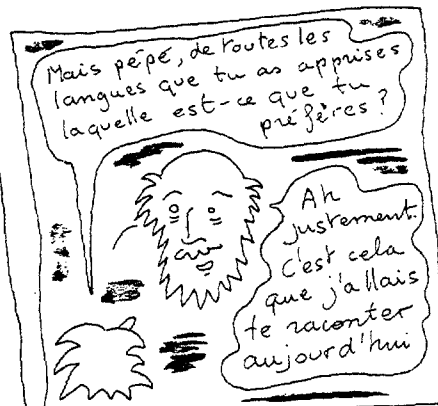 Mais pépé, de toutes les
langues que tu as apprises
laquelle est-ce que tu
préfères ?
Ah
justement.
C'est cela
que j'allais
te raconter
aujourd'hui